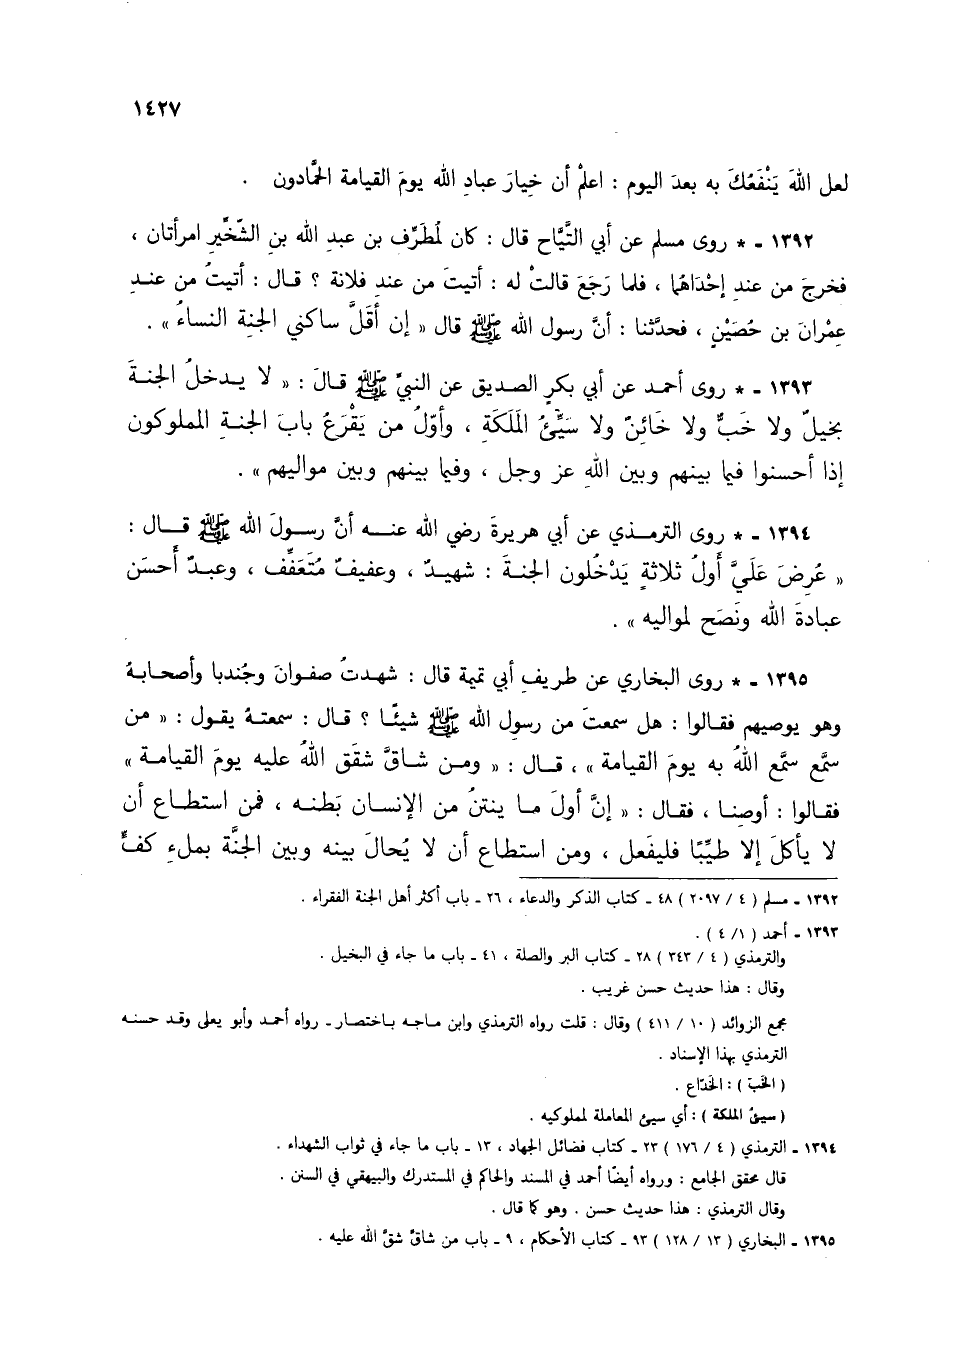 ١٤٢٧
لعل اللهَ يَنْفَعُكَ به بعدَ اليوم : اعلمْ أن خيارَ عبادِ الله يومَ القيامة الحمَّادون .
١٣٩٢ ـ * روى مسلم عن أبي التَّيَّاح قال : كان لمُطَرِّف بن عبدِ الله بنِ الشِّخِّيرِ امرأتان ،
فخرجَ من عندِ إحْدَاهُما ، فلما رَجَعَ قالتْ له : أتيتَ من عندِ فلانة ؟ قـال : أتيتُ من عنـدِ
عِمْرانَ بن حُصَيْنٍ ، فحدَّثنا : أنَّ رسول الله ﷺ قال « إن أقَلَّ ساكني الجنةِ النساءُ » .
١٣٩٣ ـ * روى أحمـد عن أبي بكرٍ الصديق عن النبيِّ ﷺ قالَ : « لا يـدخلُ الجنـةَ
بخيلٌ ولا خَبٌّ ولا خائنٌ ولا سَيِّئُ المَلَكَةِ ، وأوّلُ من يَقْرَعُ بابَ الجنـةِ المملوكون
إذا أحسنوا فيما بينهم وبين اللهِ عز وجل ، وفيما بينهم وبين مواليهم » .
١٣٩٤ ـ * روى الترمـذي عن أبي هريرةَ رضي الله عنـه أنَّ رسـولَ الله ﷺ قـال :
« عُرِضَ عَلَيَّ أولُ ثلاثةٍ يَدْخُلون الجنةَ : شهيدٌ ، وعفيفٌ مُتَعَفِّف ، وعبـدٌ أحسَن
عبادةَ الله ونَصَح لمواليه » .
١٣٩٥ ـ * روى البخاري عن طريفِ أبي تميمة قال : شهـدتُ صفـوانَ وجُندبا وأصحابـهُ
وهو يوصيهم فقـالوا : هل سمعتَ من رسولِ الله ﷺ شيئًـا ؟ قـال : سمعتـهُ يقول : « من
سمَّع سمَّع اللهُ به يومَ القيامة » ، قـال : « ومـن شـاقَّ شقَق اللهُ عليه يومَ القيامـة »
فقـالوا : أوصِنـا ، فقـال : « إنَّ أولَ مـا ينتنُ من الإنسـان بَطنـه ، فمن استطـاع أن
لا يأكلَ إلا طيِّبًا فليفعل ، ومن استطاع أن لا يُحالَ بينه وبين الجنَّة بملءِ كفٍّ
١٣٩٢ ـ مسلم ( ٤ / ٢٠٩٧ ) ٤٨ ـ كتاب الذكر والدعاء ، ٢٦ ـ باب أكثر أهل الجنة الفقراء .
١٣٩٣ ـ أحمد ( ١/ ٤ ) .
والترمذي ( ٤ / ٣٤٣ ) ٢٨ ـ كتاب البر والصلة ، ٤١ ـ باب ما جاء في البخيل .
وقال : هذا حديث حسن غريب .
مجمع الزوائد ( ١٠ / ٤١١ ) وقال : قلت رواه الترمذي وابن مـاجـه بـاختصار ـ رواه أحمـد وأبو يعلى وقـد حسنـه
الترمذي بهذا الإسناد .
( الخَبّ ) : الخدّاع .
( سيئ الملكة ) : أي سيئ المعاملة لمملوكيه .
١٣٩٤ ـ الترمذي ( ٤ / ١٧٦ ) ٢٣ ـ كتاب فضائل الجهاد ، ١٣ ـ باب ما جاء في ثواب الشهداء .
قال محقق الجامع : ورواه أيضًا أحمد في المسند والحاكم في المستدرك والبيهقي في السنن .
وقال الترمذي : هذا حديث حسن . وهو كما قال .
١٣٩٥ ـ البخاري ( ١٣ / ١٢٨ ) ٩٣ ـ كتاب الأحكام ، ٩ ـ باب من شاقّ شقّ الله عليه .